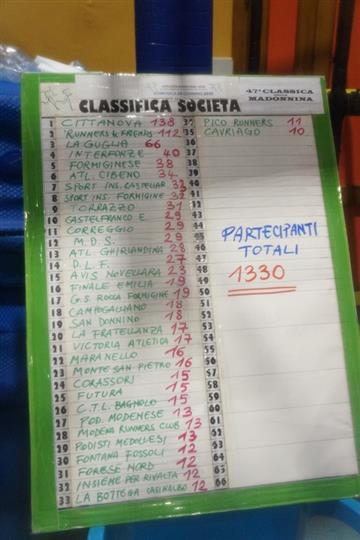 47ª CLASSICA
MADONNINA
CLASSIFICA SOCIETA
1 CITTANOVA 138
2 RUNNERS & FRIENDS 112
3 LA GUGLIA 66
4 INTERFORZE 40
5 FORMIGINESE 38
6 ATL. CIBENO 34
7 SPORT INS. CASTELVAR 33
8 SPORT INS. FORMIGINE 32
9 TORRAZZO 31
10 CASTELFRANCO E. 29
11 CORREGGIO 29
12 M.D.S. 29
13 ATL. GHIRLANDINA 28
14 D.L.F. 27
15 AVIS NOVELLARA 23
16 FINALE EMILIA 19
17 G.S. ROCCA FORMIGINE 19
18 CAMPOGALLIANO 18
19 SAN DONNINO 18
20 LA FRATELLANZA 17
21 VICTORIA ATLETICA 17
22 MARANELLO 16
23 MONTE SAN PIETRO 16
24 CORASSORI 15
25 FUTURA 15
26 C.T.L. BAGNOLO 15
27 POD. MODENESE 13
28 MODENA RUNNERS CLUB 13
29 PODISTI MEDOLLESI 13
30 FONTANA FOSSOLI 12
31 FORESE NORD 12
32 INSIEME PER RIVALTA 12
33 LA BOTTEGA CASINALBO 12
PICO RUNNERS 11
35 CAVRIAGO 10
36
37
38
39
40
41
42
43
44
45
46
47
48
49
50
51
52
53
54
55
56
57
58
59
60
61
62
63
64
65
66
PARTECIPANTI
TOTALI
1330